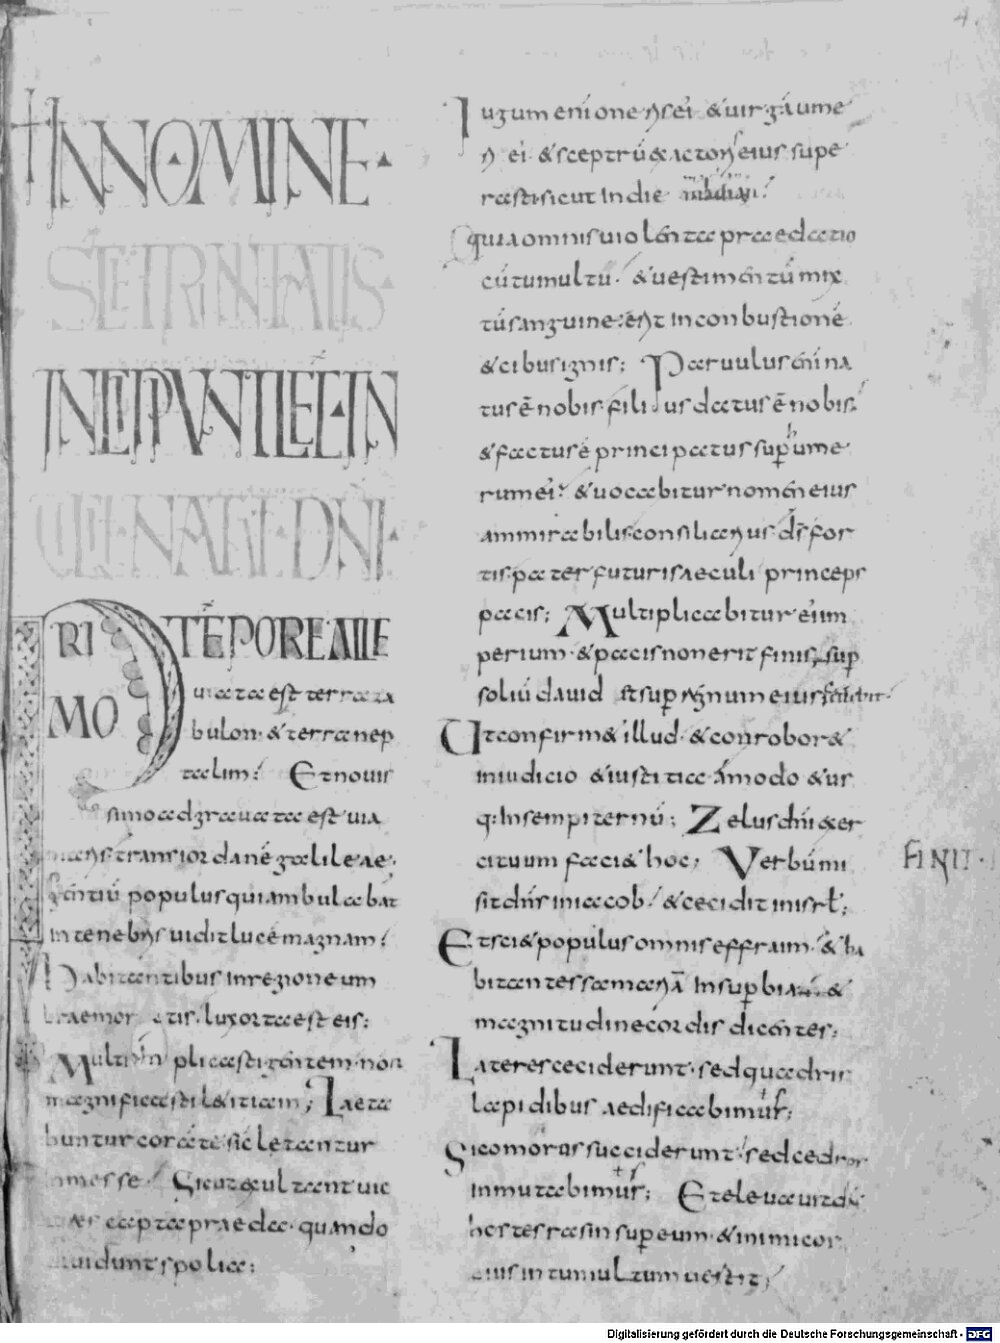 4.
IN NOMINE·
SCE TRINITATIS
INCIPIUNT LEC̄ IN
UIGL̄· NATĪ· DN̄I·
PRIMO TĒPORE ALLE
uiata est terra za
bulon· & terra nep
talim? Et nouis
simo adgrauata est uia
maris transiordanē galileae·
gentiū populus qui ambulabat
in tenebris uidit lucē magnam?
Habitantibus in regione um
brae mortis· lux orta est eis:
Multiplicasti gentem· non
magnificasti l&itiam; Laeta
buntur corā te sic letantur
in messe· Sicut exultant uic
tores capta praeda· quando
diuidunt spolia:
Iugum enī oneris ei & uirgā ume
ri ei & sceptrū exactoris eius supe
rasti sicut in die madian?
quia omnis uiolenta praedatio
cū tumultu· & uestimentū mix
tū sanguine· erit in conbustionē
& cibus ignis; Paruulus enī na
tus ē nobis· filius datus ē nobis·
& factus ē principatus sup hume
rum eī? & uocabitur nomen eius
ammirabilis· consiliarius· ds̄ for
tis· pater futuri saeculi princeps
pacis; Multiplicabitur eī im
perium· & pacis non erit finis, sup
soliū dauid & sup regnum eius sedebit·
Ut confirm& illud· & conrobor&
in iudicio & iustitia· ámodo & us
q: in sempiternū; Zelus dn̄i exer
cituum faci& hoc; Verbū mi
sit dn̄s in iacob? & cecidit in isrl̄;
FINIT·
Et sci& populus omnis effraim· & ha
bitantes samariā In supbia &
magnitudine cordis dicentes;
Lateres ceciderunt· sed quadris
lapidibus aedificabimus;
Sicomoros succiderunt· sed cedros
inmutabimus; Et eleuauit dn̄s
hostes rasin super eum· & inimicos
eius in tumultum uertit;
Digitalisierung gefördert durch die Deutsche Forschungsgemeinschaft - DFG